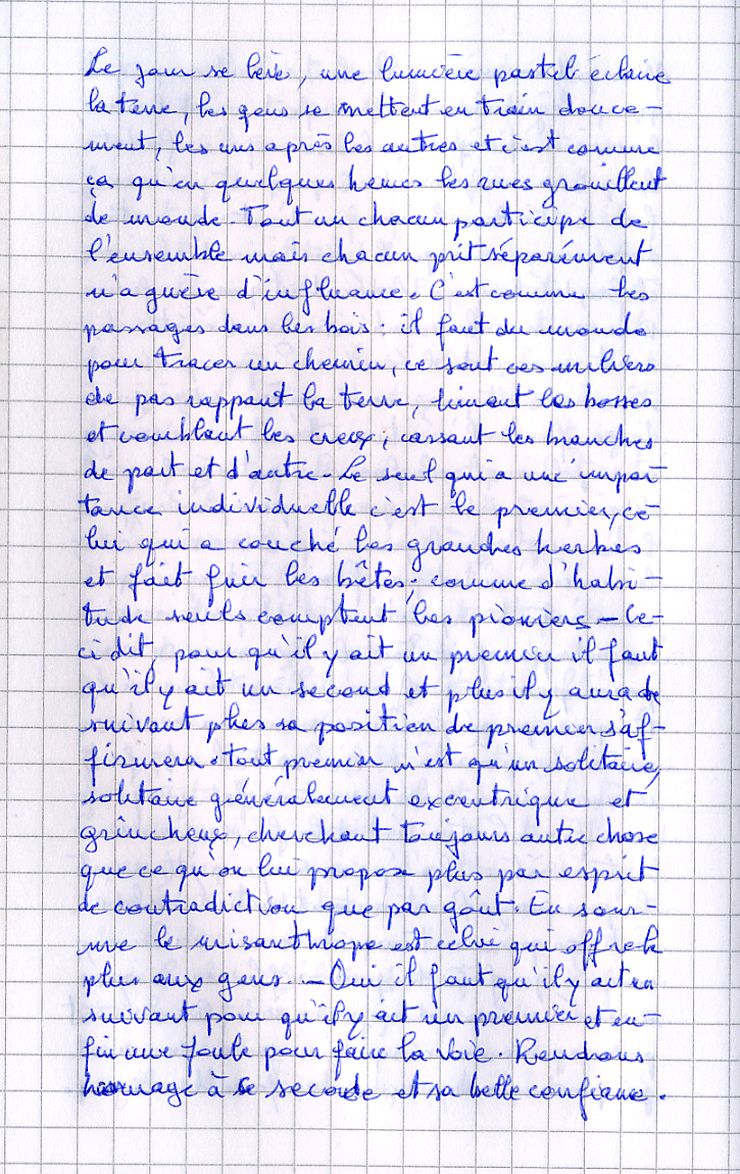 Le jour se lève, une lumière pastel éclaire
la terre, les gens se mettent en train douce-
ment, les uns après les autres et c'est comme
ça qu'en quelques heures les rues grouillent
de monde. Tout un chacun participe de
l'ensemble mais chacun prit séparément
n'a guère d'influence. C'est comme les
passages dans les bois : il faut du monde
pour tracer un chemin, ce sont ces milliers
de pas rappant la terre, limant les bosses
et comblant les creux, cassant les branches
de part et d'autre. Le seul qui a une impor
tance individuelle c'est le premier, ce-
lui qui a couché les grandes herbes
et fait fuir les bêtes, comme d'habi-
tude seuls comptent les pioniers - Ce-
ci dit, pour qu'il y ait un premier il faut
qu'il y ait un second et plus il y aura de
suivant plus sa position de premier s'af-
firmera. Tout premier n'est qu'un solitaire,
solitaire généralement excentrique et
grincheux, cherchant toujours autre chose
que ce qu'on lui propose plus par esprit
de contradiction que par goût. En som-
me le misanthrope est celui qui offre le
plus aux gens. - Oui il faut qu'il y ait un
suivant pour qu'il y ait un premier et en-
fin une foule pour faire la voie. Rendrons
hommage à ce seconde et sa belle confiance.